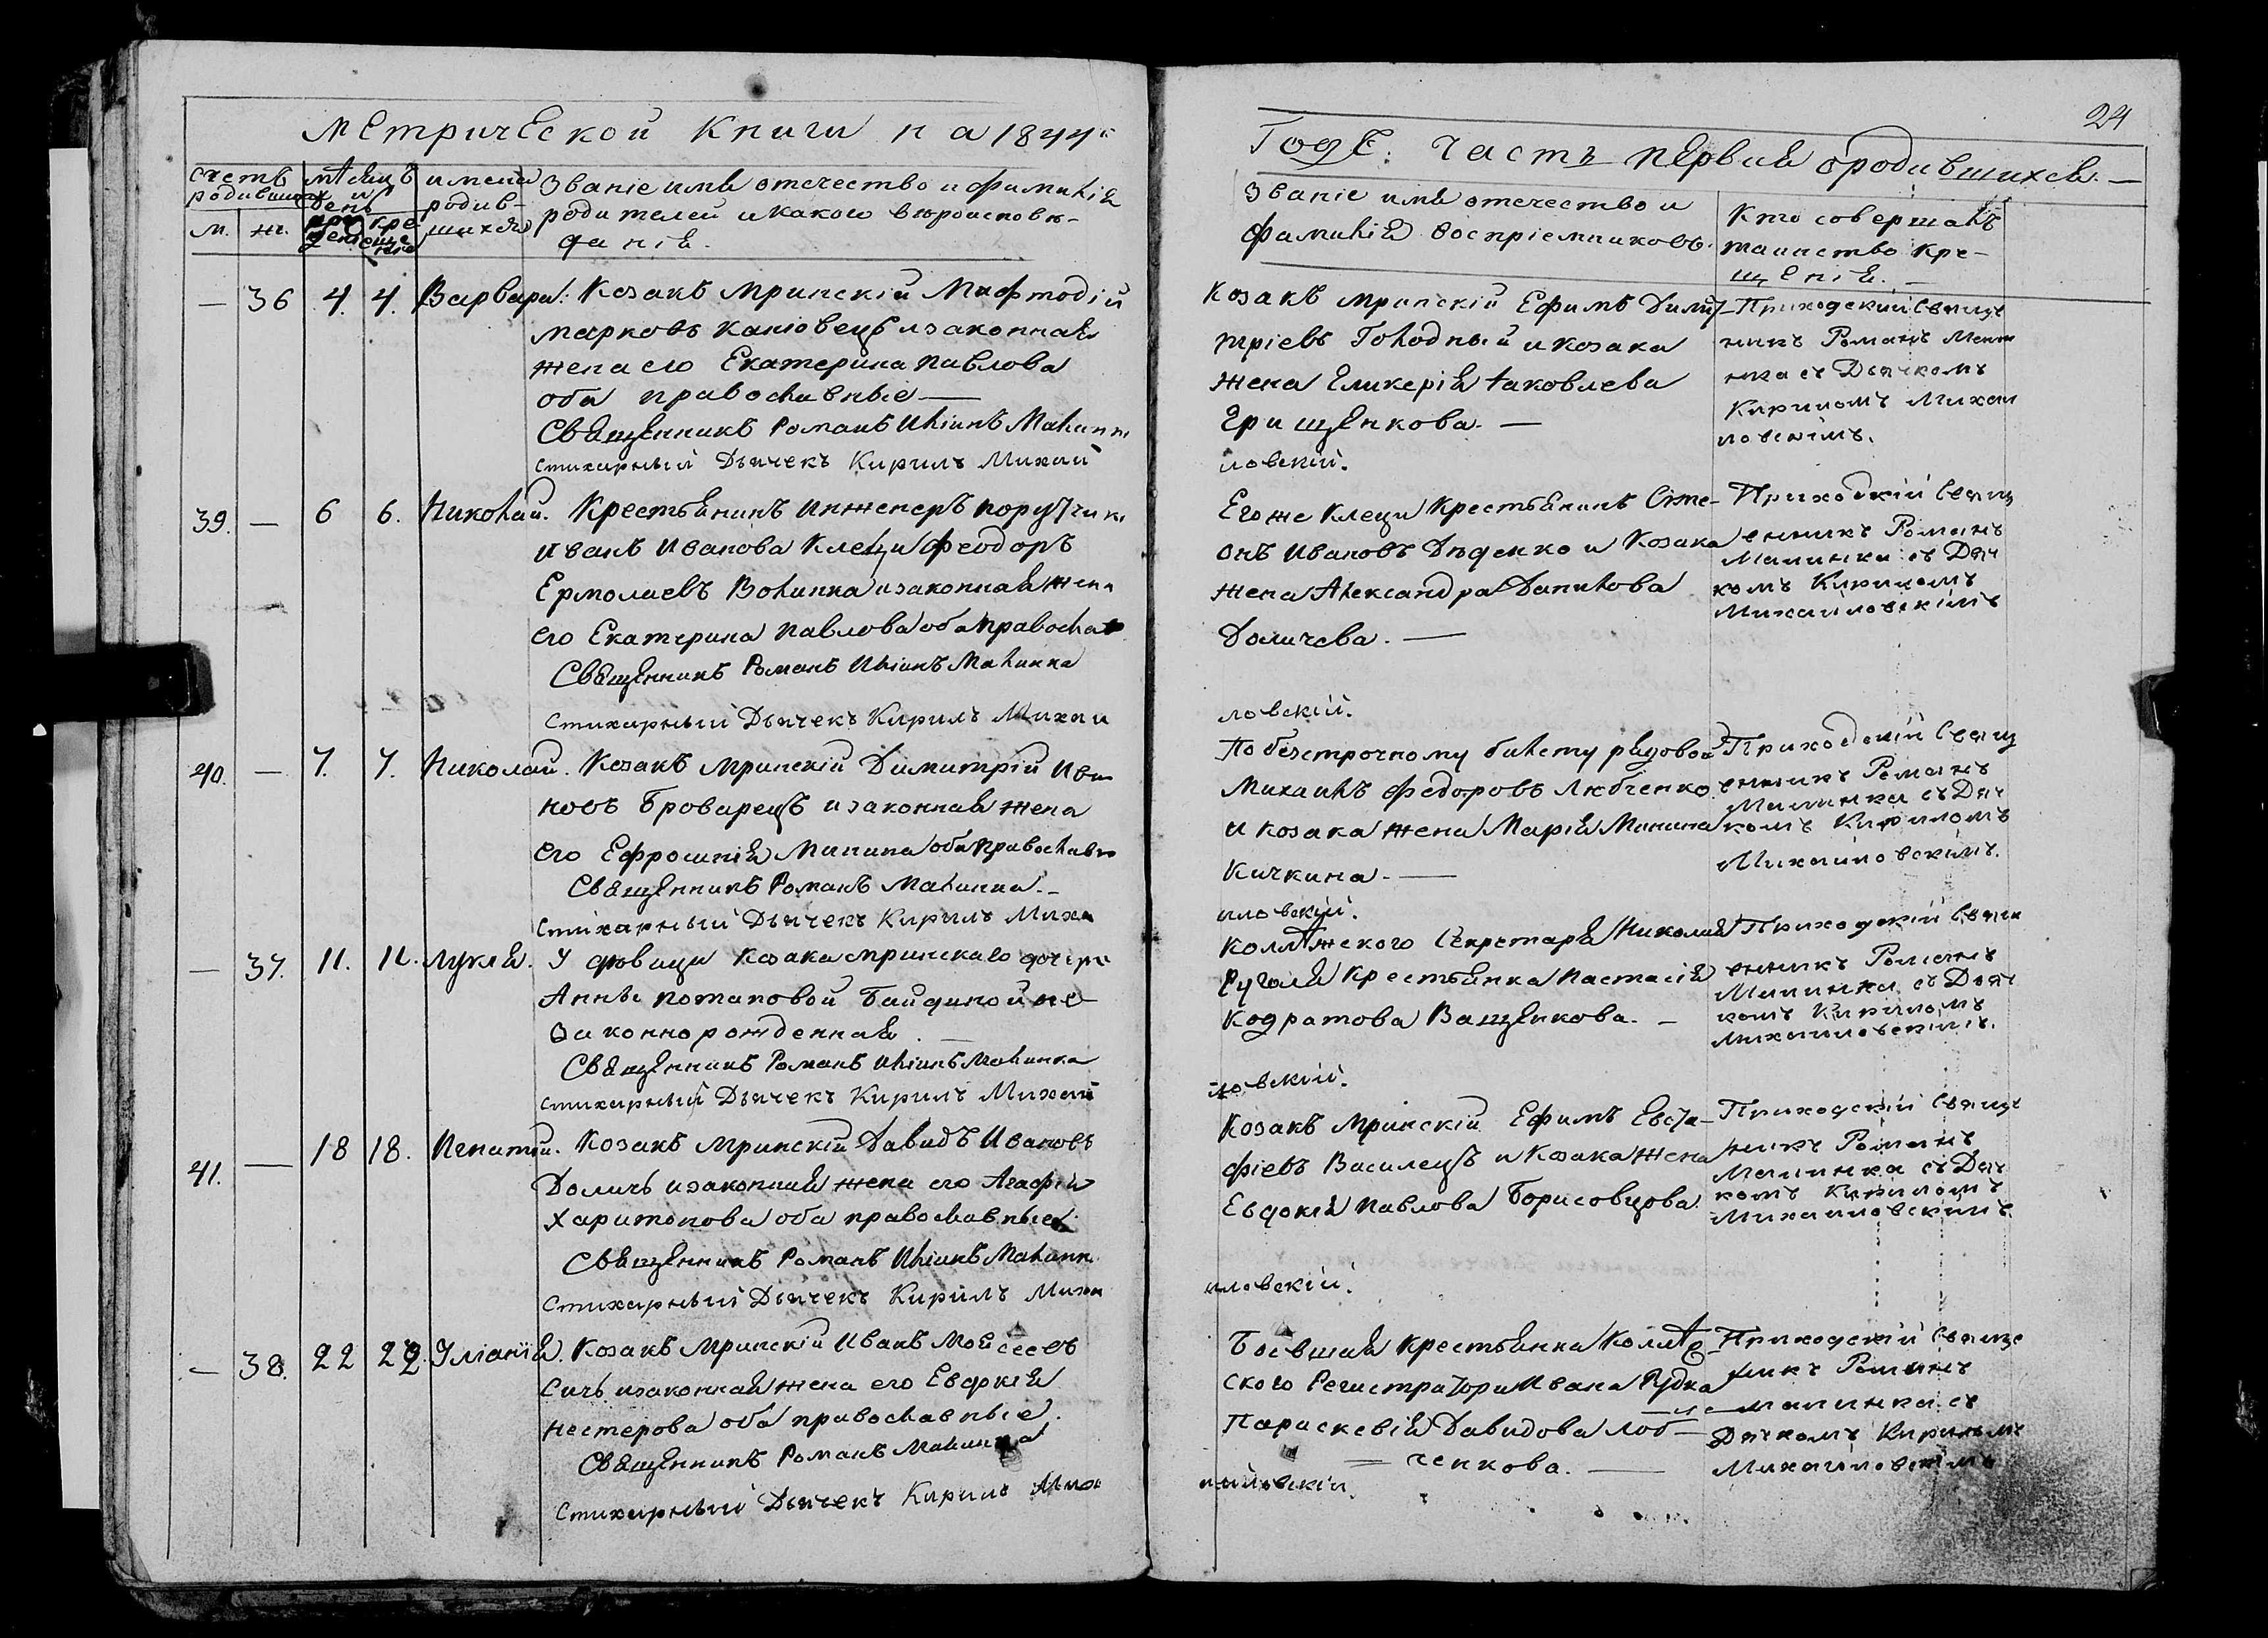 Метрической Книги на 1844.
счетъ родившихся
м. ж.
мѣсяцъ и день
рождения крещения
имена родившихся
Званіе имя отечество и фамилія
родителей и какого вѣроисповѣ-
данія.
— 36 4. 4. Варвара. Козакъ Мринскій Мефтодій
Марковъ Каніовецъ и законная
жена его Екатерина Павлова
оба православные —
Священникъ Романъ Малин
Стихарный Дьячекъ Кирилъ Михай
39. — 6 6. Николай. Крестьянинъ Инженеръ поручика
Ивана Иванова Клеци Феодоръ
Ермолаевъ Волинка и законная жена
его Екатерина Павлова оба правосла
Священникъ Романъ Малинка
Стихарный Дьячекъ Кирилъ Михаи
40. — 7. 7. Николай. Козакъ Мринскій Димитрій Ива
новъ Броварецъ и законная жена
его Ефросинія Минина оба православн
Священникъ Романъ Малинка. —
Стихарный Дьячекъ Кирилъ Миха
— 37. 11. 11. Лукія. У вдовици Козака Мринскаго дочери
Анны Потаповой Байдиной не-
законнорожденная. —
Священникъ Романъ Малинка
Стихарный Дьячекъ Кирилъ Михай
41. — 18 18. Игнатій. Козакъ Мринскій Давидъ Ивановъ
Доличъ и законная жена его Агафія
Харитонова оба православные.
Священникъ Романъ Малинк
Стихарный Дьячекъ Кирилъ Миха
— 38. 22 22 Уліанія. Козакъ Мринскій Иванъ Мойсеевъ
Сичъ и законная жена его Евдокія
Нестерова оба православные.
Священникъ Романъ Малинка
Стихарный Дьячекъ Кирилъ Миха
24
Годъ. Часть первая о родившихся. —
Званіе имя отечество и
фамилія воспріемниковъ.
Кто совершалъ
таинство кре-
щенія. —
Козакъ Мринскій Ефимъ Дими-
тріевъ Голодный и козака
жена Гликерія Яковлева
Грищенкова. —
ловскій.
Приходский Священ
никъ Романъ Малин
нка съ Дьячкомъ
Кириломъ Михаи
ловскимъ.
Егоже Клеци Крестьянинъ Симе-
онъ Ивановъ Дѣденко и Козака
жена Александра Данилова
Доличева. —
ловскій.
Приходскій Свящ
енникъ Романъ
Малинка съ Дяч
комъ Кириломъ
Михайловскімъ
По безстрочному билету рядовой
Михаилъ Федоровъ Любченко
и козака жена Марія Минина
Кичкина. —
иловскій.
Приходскій Свящ
енникъ Романъ
Малинка съ Дяч
комъ Кириломъ
Михайловскімъ.
Коллѣжского Секретаря Николая
Руголя Крестьянка Настасія
Кодратова Ващенкова. —
ловскій.
Приходскій Свящ
енникъ Романъ
Малинка съ Дяч
комъ Кириломъ
Михайловскімъ.
Козакъ Мринскій Ефимъ Евста-
фіевъ Василецъ и Козака жена
Евдокія Павлова Борисовцова.
иловскій.
Приходскій Священ
никъ Романъ
Малинка съ Дяч
комъ Кириломъ
Михайловскимъ.
Бовшая Крестьянка Коллѣж-
ского Регистратора Ивана Рудка
Параскевія Давидова Лоб —
— ченкова. —
йловскій.
Приходскій Священ
никъ Романъ
Малинка съ
Дячкомъ Кириломъ
Михайловскімъ